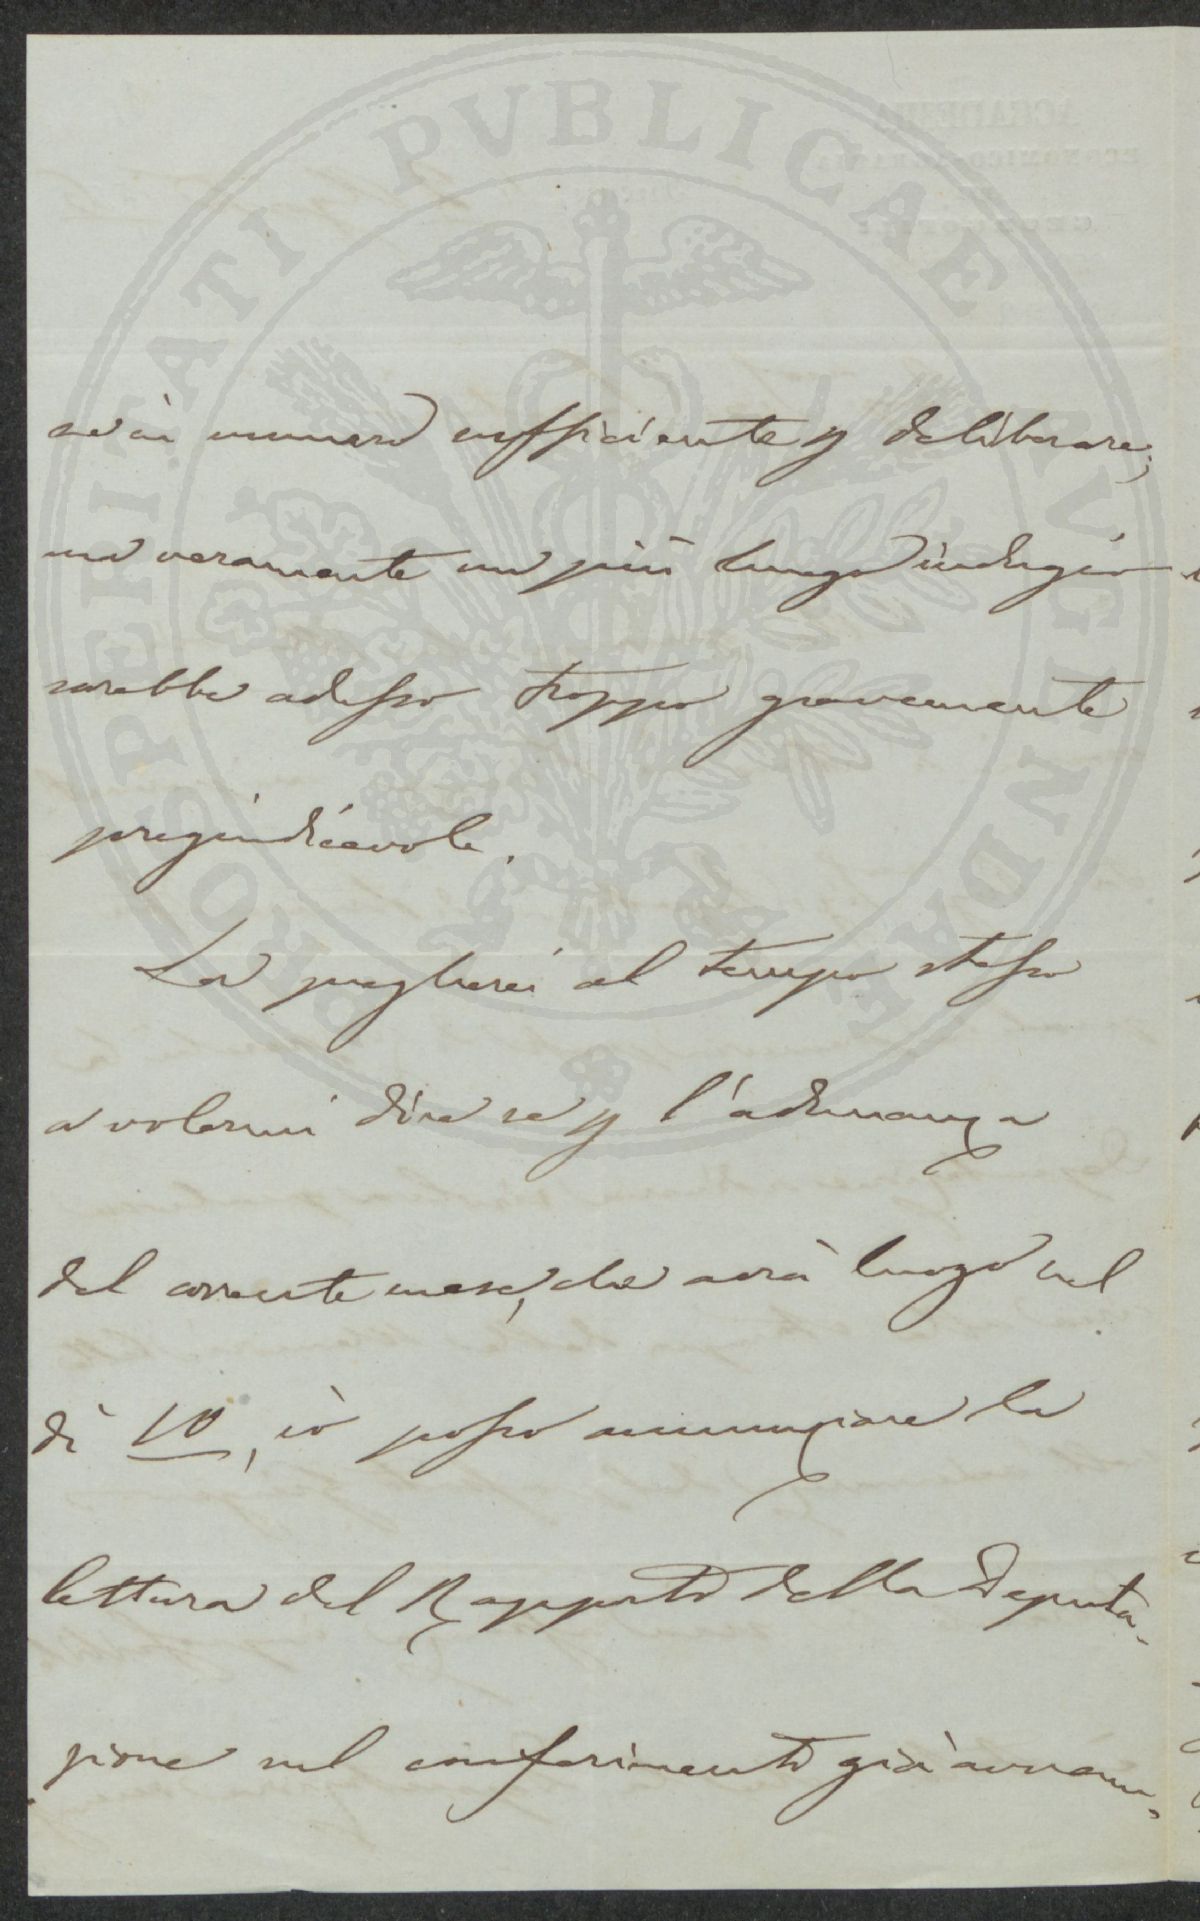 PROSPERITATI PVBLICAE AVGENDAE
sarà in numero sufficiente p deliberare;
ma veramente un più lungo indugio
sarebbe adesso troppo gravemente
pregiudicevole.
La pregherei al tempo stesso
a volermi dire se p l'adunanza
del corrente mese, che avrà luogo nel
dì 10, io posso annunziare la
lettura del Rapporto della Deputa-
zione sul conferimento già avvenu-